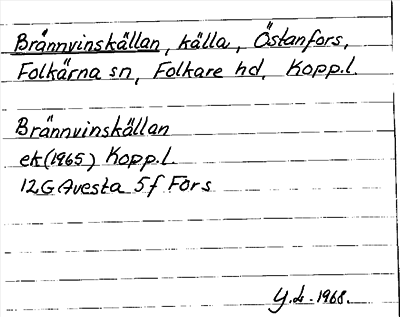 Brännvinskällan, källa, Östanfors,
Folkärna sn, Folkare hd, Kopp.l.
Brännvinskällan
ek(1965) Kopp.l.
12G Avesta 5f Fors
1968.